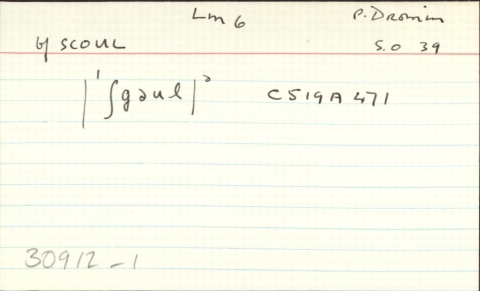 Lm 6 P. Dromin
y SCOUL S.O 39
|ˈʃgəul|ˀ C519A471
30912-1